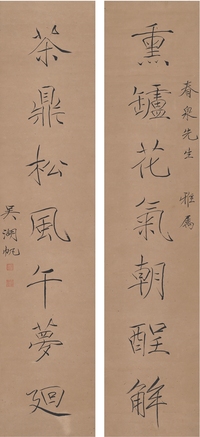 春泉先生 雅属
熏罏花氣朝酲解
茶鼎松風午夢廻
吳湖帆